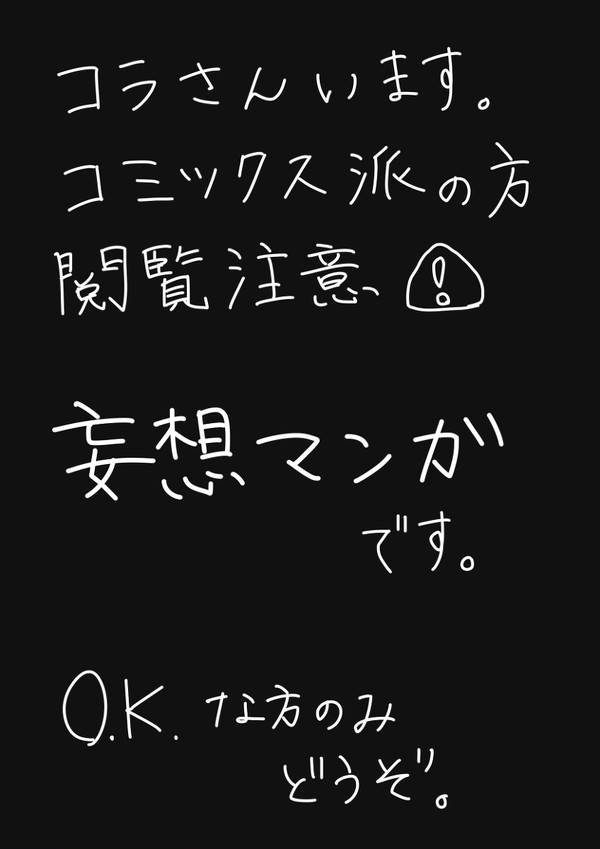 コラさんいます。
コミックス派の方
閲覧注意⚠
妄想マンガ
です。
O.K.な方のみ
どうぞ。